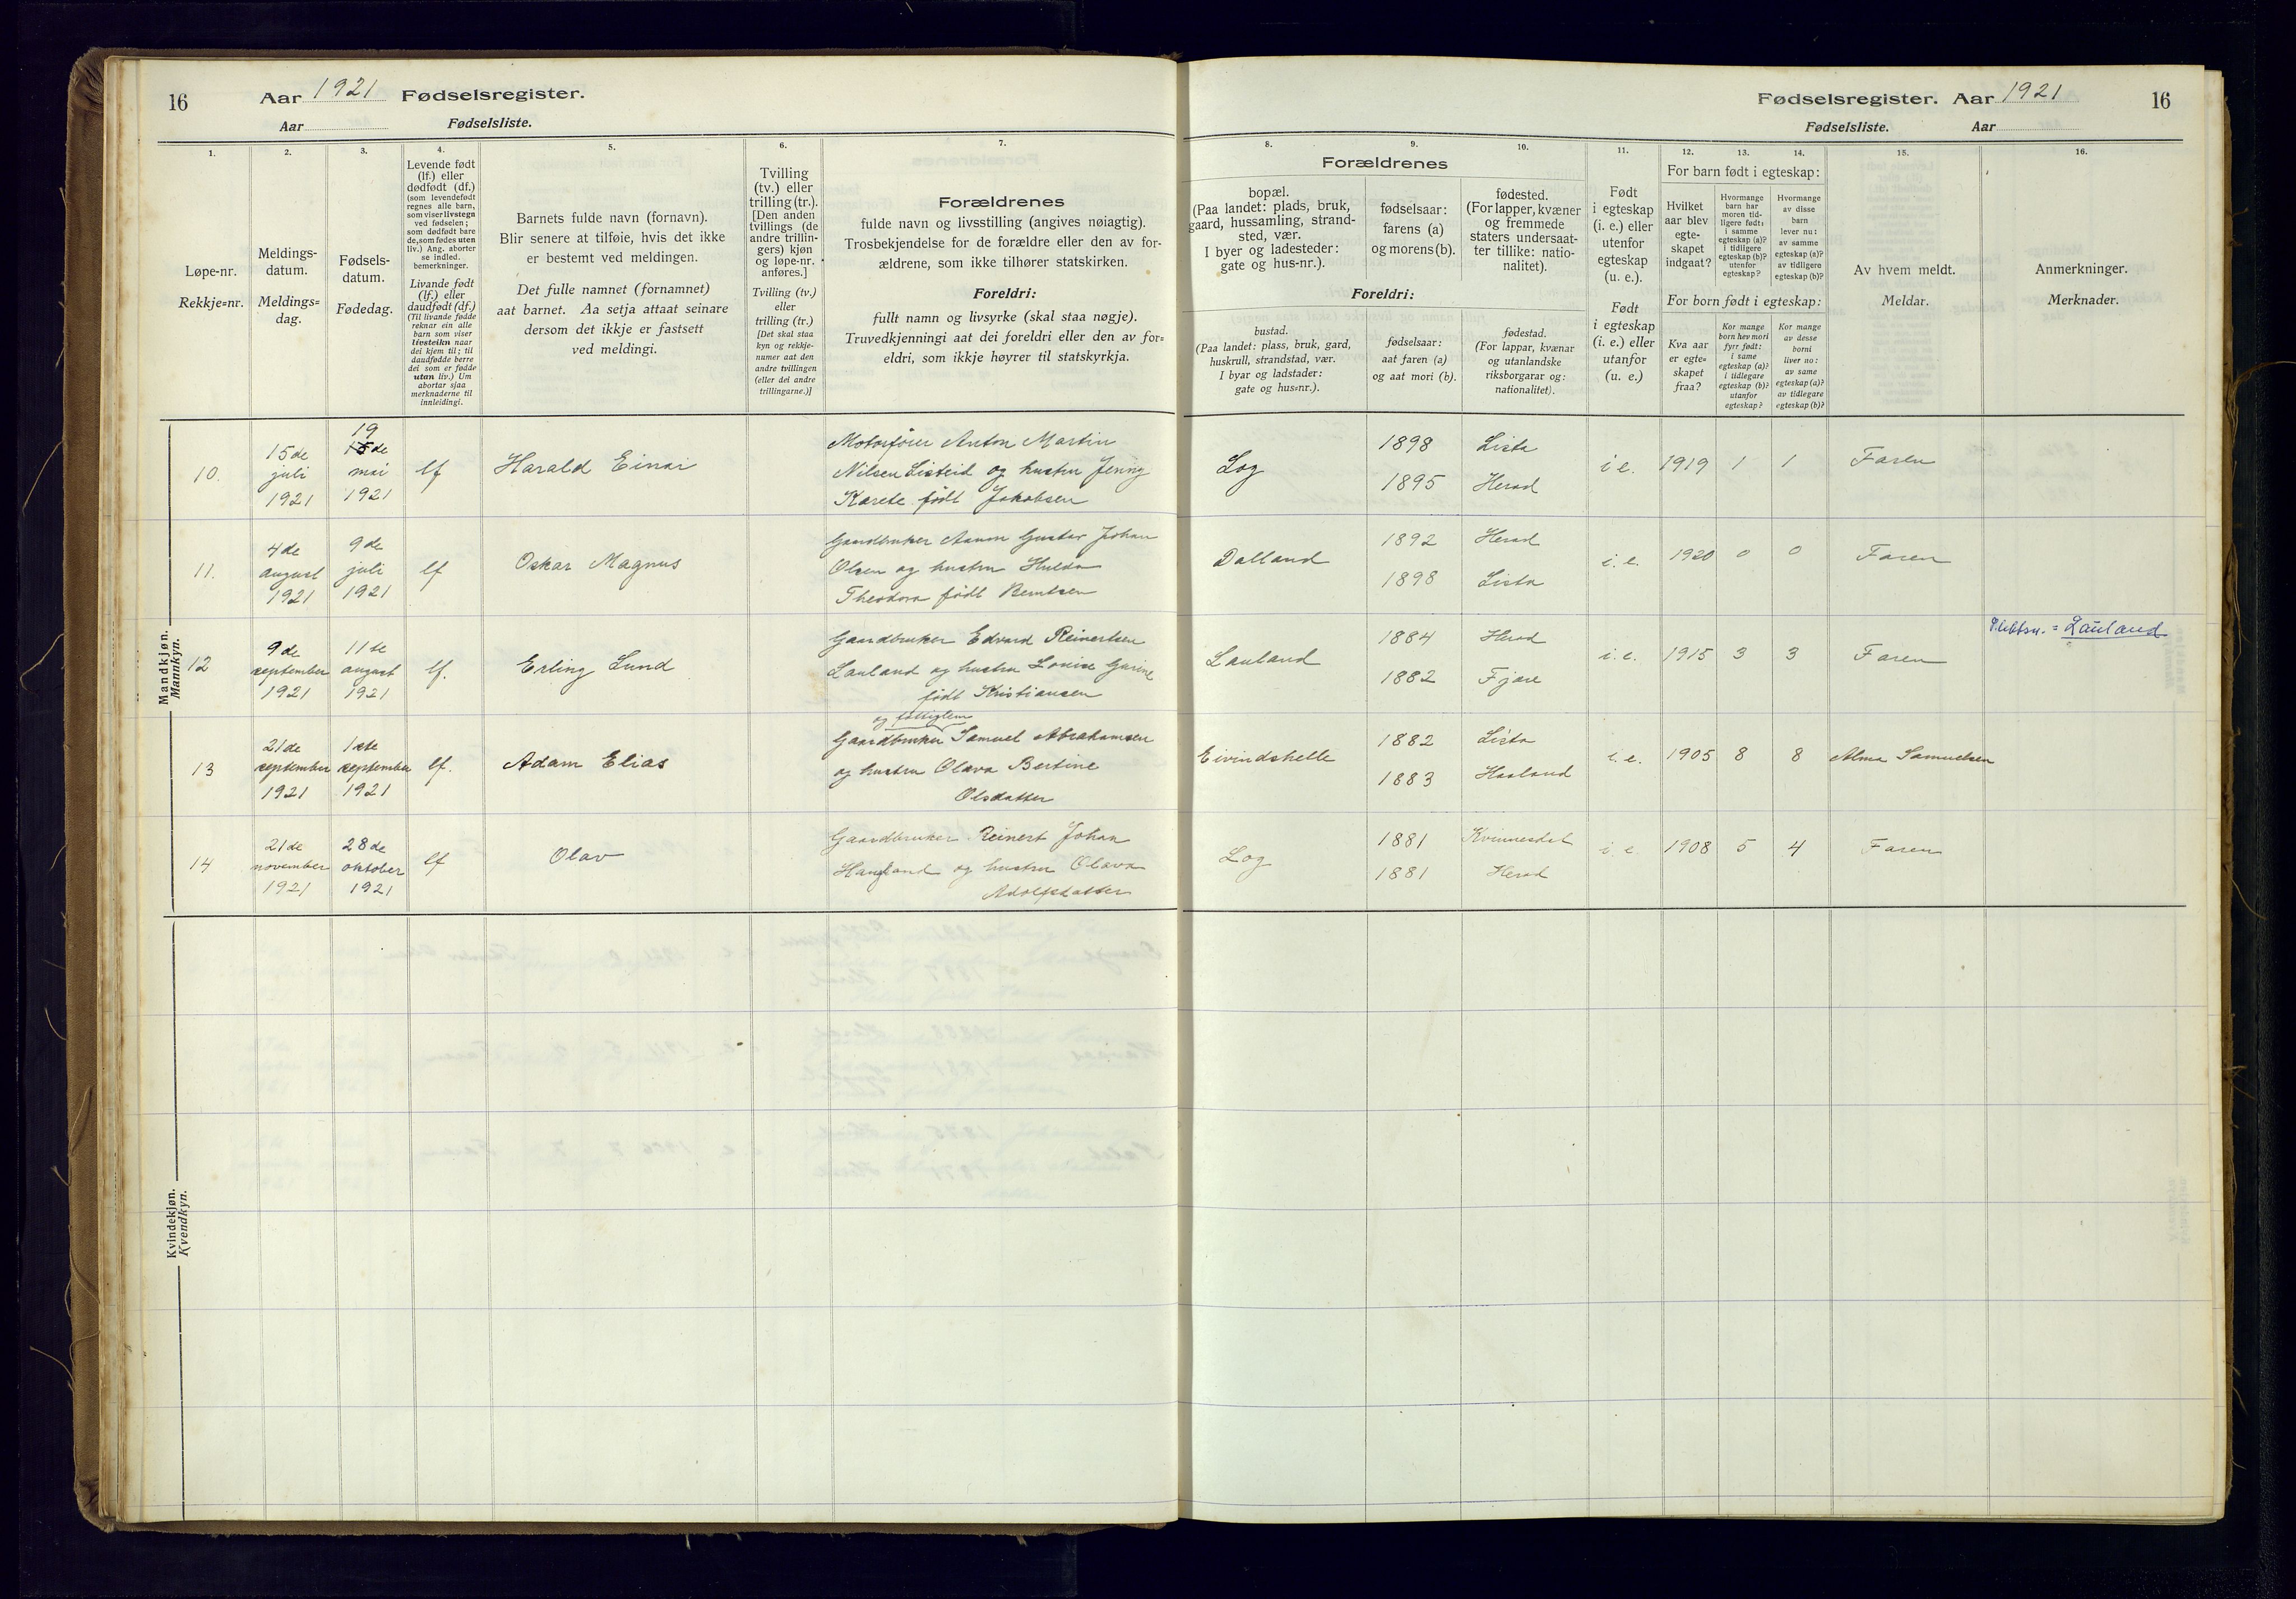 16
Aar 1921 Fødselsregister.
Aar Fødselsliste.
Fødselsregister. Aar 1921
16
Fødselsliste. Aar
1.
Løpe-nr.
Rekkje=nr.
2.
Meldings-
datum.
Meldings=
dag.
3.
Fødsels-
datum.
Fødedag.
4.
Levende født
(lf.) eller
dødfødt (df.)
(som levendefødt
regnes alle barn,
som viser livstegn
ved fødselen;
som dødfødt bare
de, som fødes uten
liv.) Ang. aborter
se indled.
bemerkninger.
Livande født
(lf.) eller
daudfødt (df.)
(Til livande fødde
reknar ein alle
barn som viser
livsteikn naar
dei kjem til; til
daudfødde berre
dei som er fødde
utan liv.) Um
abortar sjaa
merknaderne til
innleidingi.
5.
Barnets fulde navn (fornavn).
Blir senere at tilføie, hvis det ikke
er bestemt ved meldingen.
Det fulle namnet (fornamnet)
aat barnet. Aa setja attaat seinare
dersom det ikkje er fastsett
ved meldingi.
6.
Tvilling
(tv.) eller
trilling (tr.).
[Den anden
tvillings (de
andre trillin-
gers) kjøn
og løpe-nr.
anføres.]
Tvilling (tv.)
eller
trilling (tr.)
[Det skal staa
kyn og rekkje-
numer aat den
andre tvillingen
(eller dei andre
trillingarne.)]
7.
Forældrenes
fulde navn og livsstilling (angives nøiagtig).
Trosbekjendelse for de forældre eller den av for-
ældrene, som ikke tilhører statskirken.
Foreldri:
fullt namn og livsyrke (skal staa nøgje).
Truvedkjenningi aat dei foreldri eller den av for=
eldri, som ikkje høyrer til statskyrkja.
8.
9.
10.
Forældrenes
bopæl.
(Paa landet: plads, bruk,
gaard, hussamling, strand-
sted, vær.
I byer og ladesteder:
gate og hus-nr.).
fødselsaar:
farens (a)
og morens (b).
fødested.
(For lapper, kvæner
og fremmede
staters undersaat-
ter tillike: natio-
nalitet).
Foreldri:
bustad.
(Paa landet: plass, bruk, gard,
huskrull, strandstad, vær.
I byar og ladstader:
gate og hus=nr.).
fødselsaar:
aat faren (a)
og aat mori (b).
fødestad.
(For lappar, kvænar
og utanlandske
riksborgarar og:
nationalitet).
11.
Født
i egteskap
(i. e.) eller
utenfor
egteskap
(u. e.).
Født
i egteskap
(i. e.) eller
utanfor
(u. e.)
12.
13.
14.
For barn født i egteskap:
Hvilket
aar blev
egte-
skapet
indgaat?
Hvormange
barn har
moren tid-
ligere født:
i samme
egteskap (a)?
i tidligere
egteskap (b)?
utenfor
egteskap?
Hvormange
av disse
barn
lever nu:
av samme
egteskap (a)?
av tidligere
egteskap (b)?
For born født i egteskap:
Kva aar
er egte=
skapet
fraa?
Kor mange
born hev mori
fyrr født:
i same
egteskap (a)?
i tidlegare
egteskap (b)?
utanfor
egteskap?
Kor mange
av desse
borni
liver no:
av same
egteskap (a)?
av tidlegare
egteskap (b)?
15.
Av hvem meldt.
Meldar.
16.
Anmerkninger.
Merknader.
Mandkjøn.
Mannkyn.
10. 15de juli 1921 19 15de mai 1921 lf Harald Einar
Motorfører Anton Martin
Nilsen Listeid og hustru Jenny
Karete født Jakobsen
Log 1898 Lista 1895 Herad i e. 1919 1 1 Faren
11. 4de august 1921 9de juli 1921 lf Oskar Magnus
Gaardbruker Aanon Gustav Johan
Olsen og hustru Hulda
Theodora født Berntsen
Dalland 1892 Herad 1898 Lista i. e. 1920 0 0 Faren
12 9de september 1921 11te august 1921 lf. Erling Lund
Gaardbruker Edvard Reinertsen
Lauland og hustru Lovise Gurine
født Kristiansen
Lauland 1884 Herad 1882 Fjære i. e. 1915 3 3 Faren = Lauland
13 21de september 1921 1ste september 1921 lf. Adam Elias
Gaardbruker Samuel Abrahamsen
og hustru Olava Bertine
Olsdatter
Eivindshelle 1882 Lista 1883 Haaland i. e. 1905 8 8 Alma Samuelsen
14 21de november 1921 28de oktober 1921 lf Olav
Gaardbruker Reinert Johan
Haugland og hustru Olava
Adolfsdatter
Log 1881 Kvinnesdal 1881 Herad i e. 1908 5 4 Faren
Kvindekjøn.
Kvendkyn.